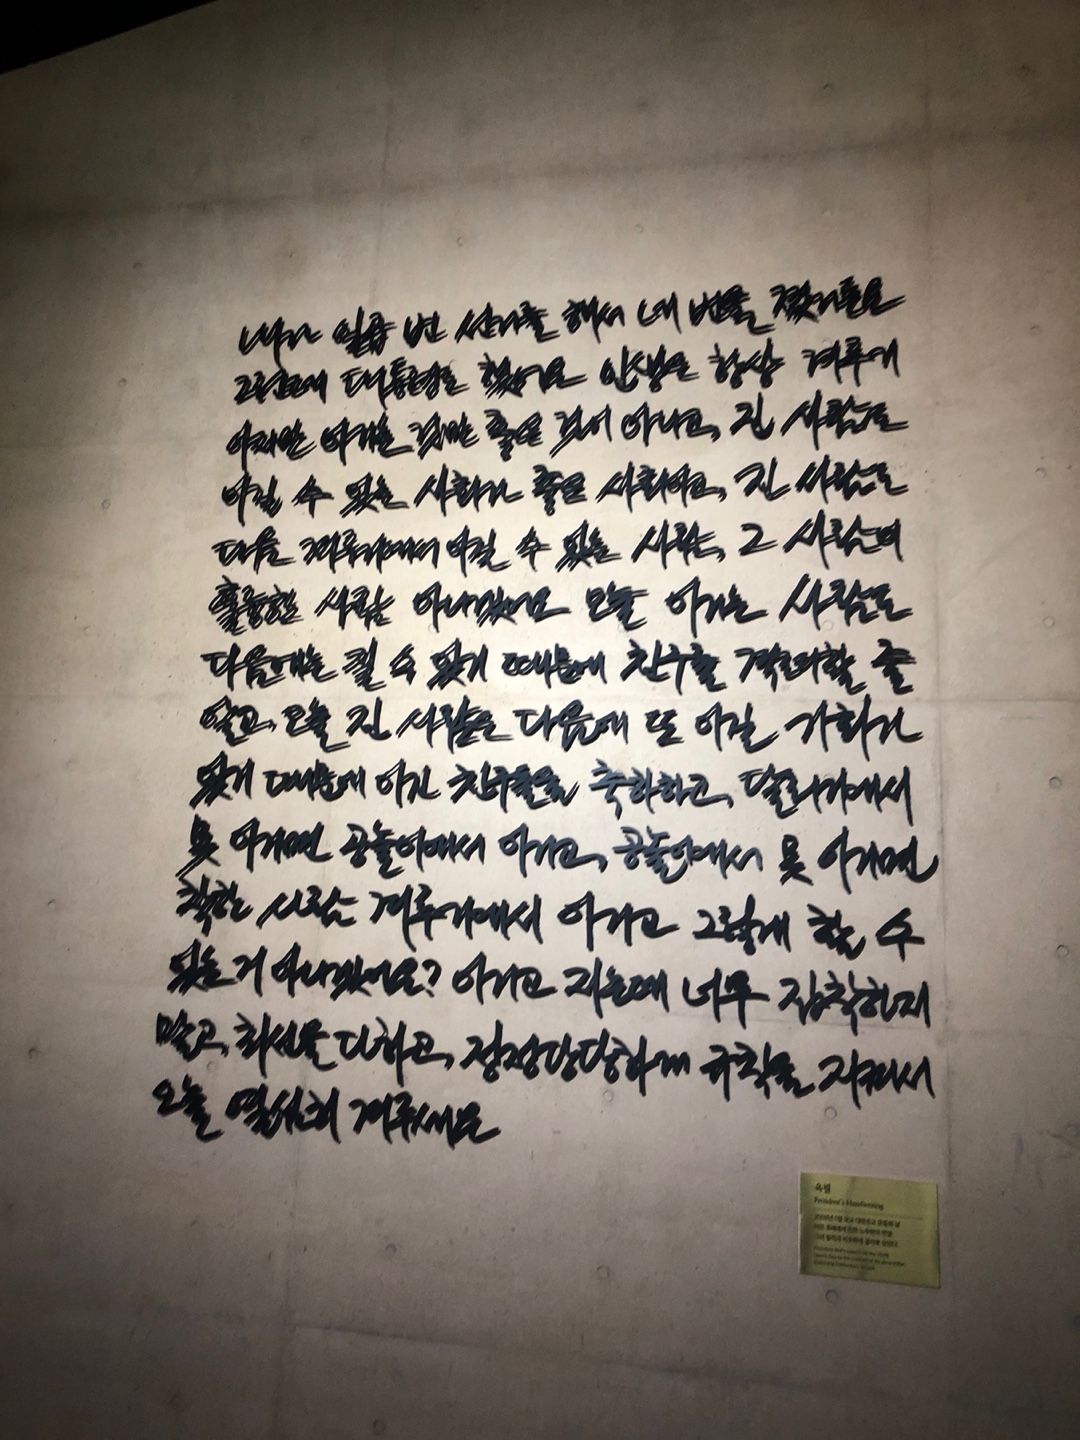 내가 일곱 번 선거를 해서 네 번을 졌거든요
그런데 대통령을 했어요 인생은 항상 겨루기
이지만 이기는 것만 좋은 것이 아니고, 진 사람도
이길 수 있는 사회가 좋은 사회이고, 진 사람도
다음 겨루기에서 이길 수 있는 사람은, 그 사람이
훌륭한 사람 아니겠어요 오늘 이기는 사람도
다음에는 질 수 있기 때문에 친구를 격려할 줄
알고, 오늘 진 사람은 다음에 또 이길 기회가
있기 때문에 이긴 친구들을 축하하고, 달리기에서
못 이기면 공놀이에서 이기고, 공놀이에서 못 이기면
착한 사람 겨루기에서 이기고 그렇게 할 수
있는 거 아니겠어요? 이기고 지는데 너무 집착하지
말고, 최선을 다하고, 정정당당하게 규칙을 지켜서
오늘 열심히 겨루세요
육필
President's Handwriting